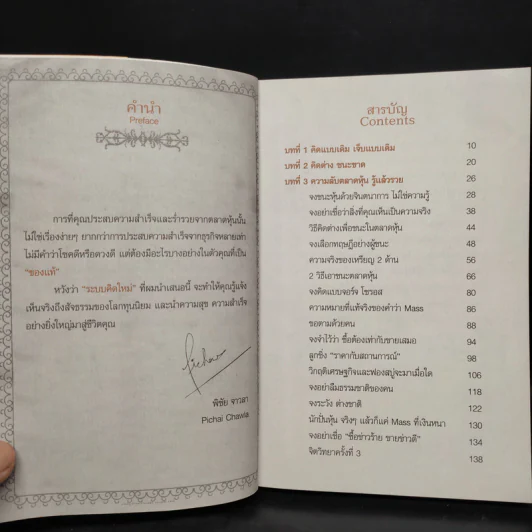 คำนำ
Preface
การที่คุณประสบความสำเร็จและร่ำรวยจากตลาดหุ้นนั้น
ไม่ใช่เรื่องง่ายๆ ยากกว่าการประสบความสำเร็จจากธุรกิจหลายเท่า
ไม่มีคำว่าโชคดีหรือดวงดี แต่ต้องมีอะไรบางอย่างในตัวคุณที่เป็น
"ของแท้"
หวังว่า "ระบบคิดใหม่" ที่ผมนำเสนอนี้ จะทำให้คุณรู้แจ้ง
เห็นจริงถึงสัจธรรมของโลกทุนนิยม และนำความสุข ความสำเร็จ
อย่างยิ่งใหญ่มาสู่ชีวิตคุณ
Pichai
พิชัย จาวลา
Pichai Chawla
สารบัญ
Contents
บทที่ 1 คิดแบบเดิม เจ็บแบบเดิม 10
บทที่ 2 คิดต่าง ชนะขาด 20
บทที่ 3 ความลับตลาดหุ้น รู้แล้วรวย 26
จงชนะหุ้นด้วยจินตนาการ ไม่ใช่ความรู้ 28
จงอย่าเชื่อว่าสิ่งที่คุณเห็นเป็นความจริง 38
วิธีคิดต่างเพื่อชนะในตลาดหุ้น 44
จงเลือกทฤษฎีอย่างผู้ชนะ 48
ความจริงของเหรียญ 2 ด้าน 56
2 วิธีเอาชนะตลาดหุ้น 66
จงคิดแบบจอร์จ โซรอส 80
ความหมายที่แท้จริงของคำว่า Mass 86
ขอตามด้วยคน 88
จงจำไว้ว่า ซื้อต้องเท่ากับขายเสมอ 94
ลูกซิ่ง "ราคากับสถานการณ์" 98
วิกฤติเศรษฐกิจและฟองสบู่จะมาเมื่อใด 106
จงอย่าลืมธรรมชาติของคน 118
จงระวัง ต่างชาติ 122
นักปั่นหุ้น จริงๆ แล้วก็แค่ Mass ที่เงินหนา 130
จงอย่าเชื่อ "ซื้อข่าวร้าย ขายข่าวดี" 134
จิตวิทยาครั้งที่ 3 138